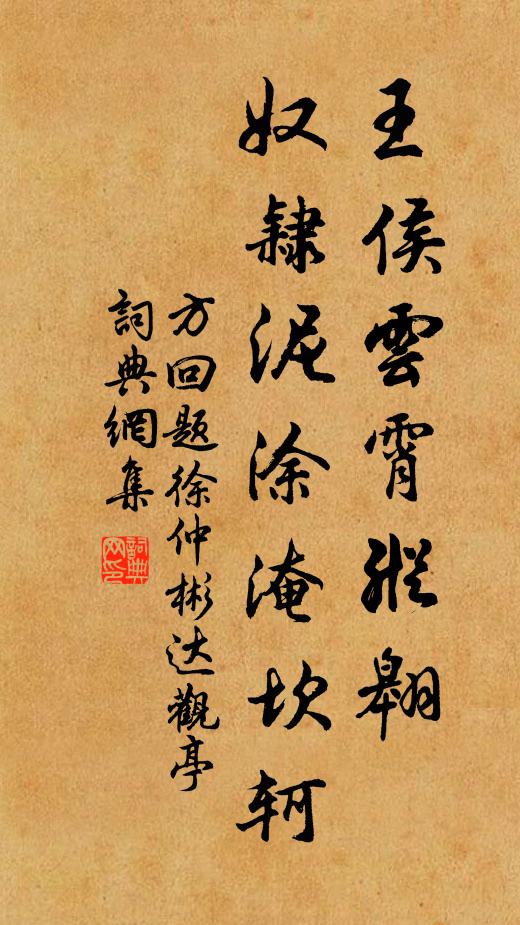 王侯雲霄縱翱
奴隸泥涂淹坎轲
方回題徐仲彬达觀亭
詞典網集
詞典网印